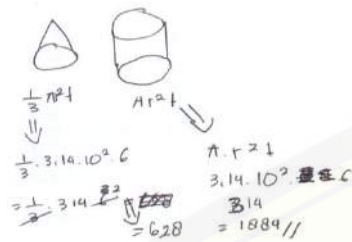 1/3 πr²t
πr²t
1/3 . 3,14 . 10² . 6
= 1/3 . 314 6 2
= 628
π . r² t
3,14 . 10² . 6
314
= 1884 //